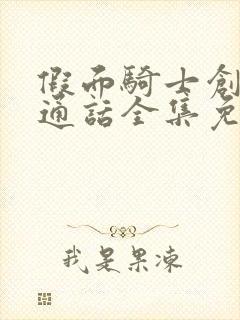 假而騎士創
通話全集免
我是果凍